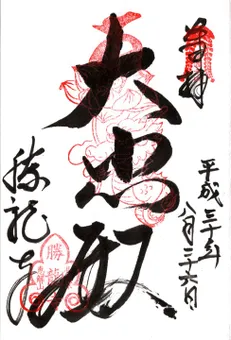 奉拝
平成三十年
八月二十六日
大悲殿
勝龍寺
勝龍